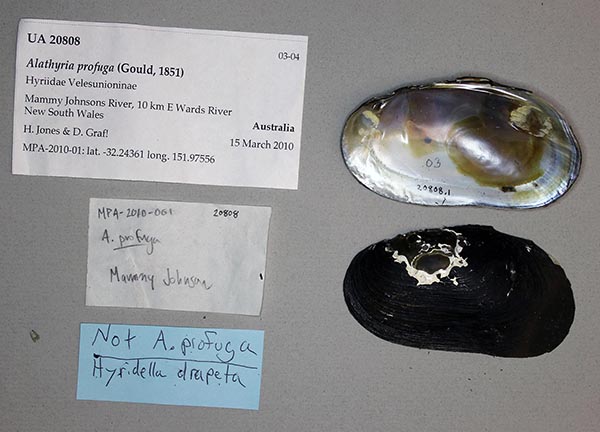 UA 20808
03-04
Alathyria profuga (Gould, 1851)
Hyriidae Velesunioninae
Mammy Johnsons River, 10 km E Wards River
New South Wales
Australia
H. Jones & D. Graf!
15 March 2010
MPA-2010-01: lat. -32.24361 long. 151.97556
MPA-2010-001 20808
A. profuga
Mammy Johnson
Not A. profuga
Hyridella drapeta
03
20808.1